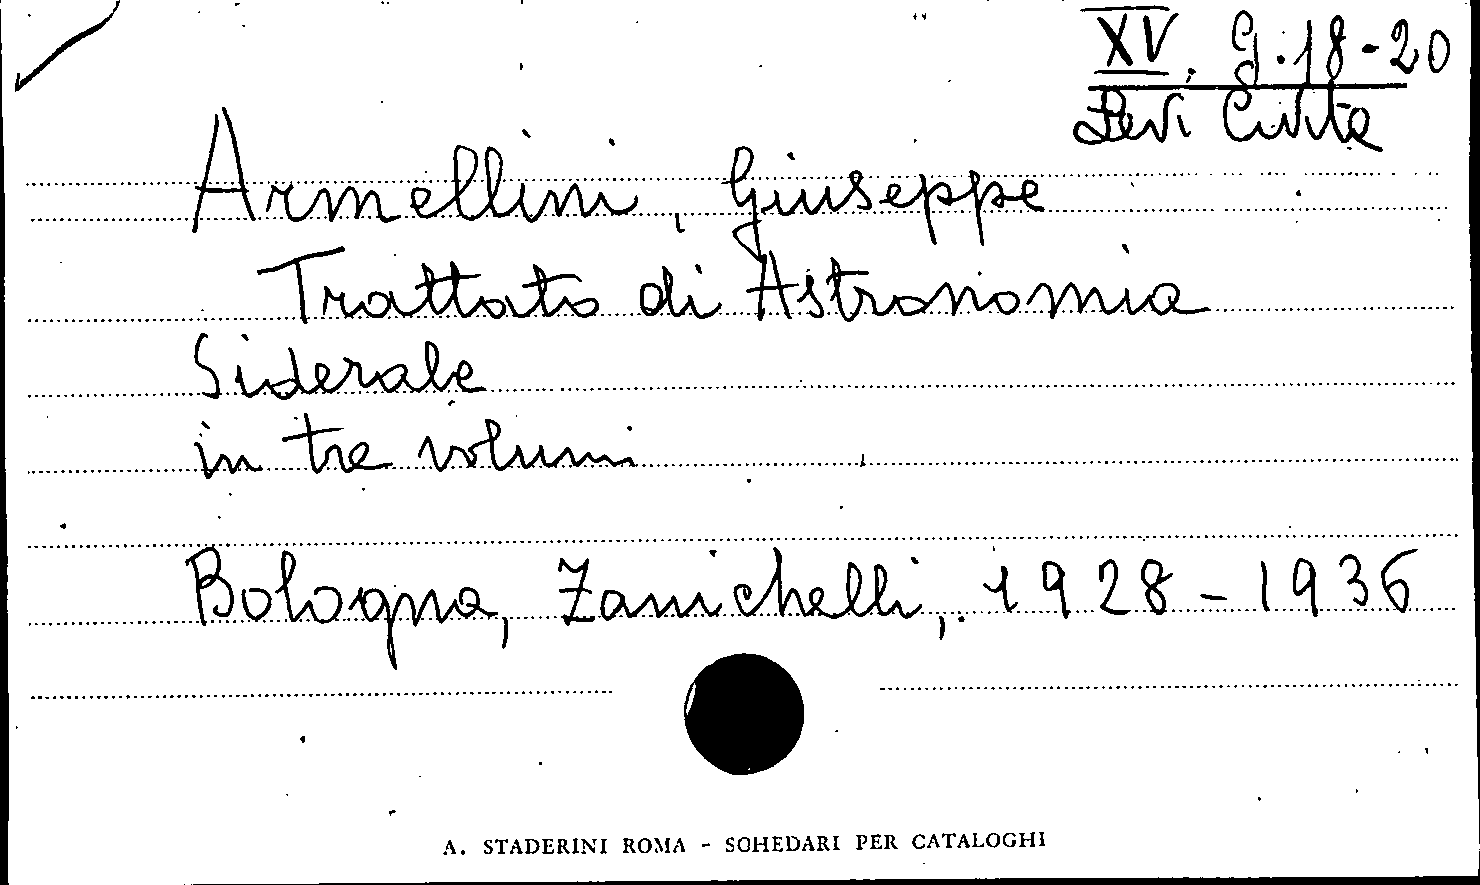 XV. G.18-20
Levi Civita
Armellini, Giuseppe
Trattato di Astronomia
Siderale
in tre volumi
Bologna, Zanichelli, 1928-1936
A. STADERINI ROMA - SCHEDARI PER CATALOGHI